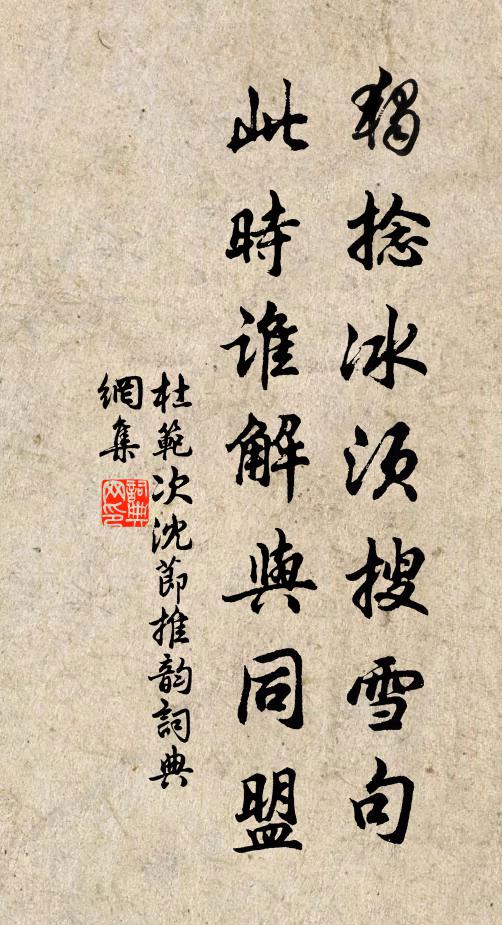 獨捻冰須搜雪句
此時誰解與同盟
杜範次沈節推韵詞典
網集
詞典
网印